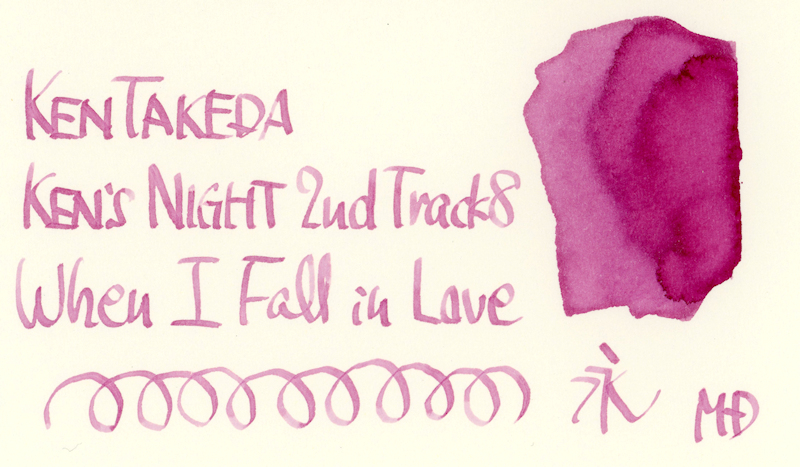 KEN TAKEDA
KEN'S NIGHT 2nd Track8
When I Fall in Love
永
MD